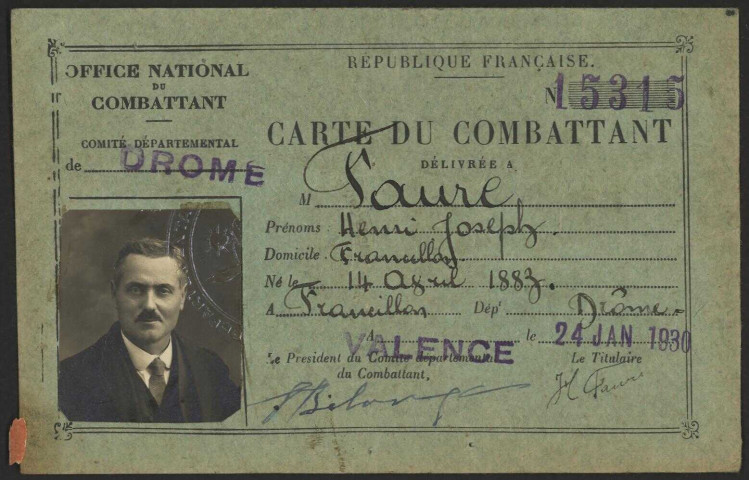 OFFICE NATIONAL
DU
COMBATTANT
COMITÉ DÉPARTEMENTAL
de DROME
RÉPUBLIQUE FRANÇAISE.
N 15315
CARTE DU COMBATTANT
DÉLIVRÉE A
M Faure
Prénoms Henri Joseph.
Domicile Francillon
Né le 14 Avril 1883.
A Francillon Dépt Drôme
A VALENCE le 24 JAN 1930
Le President du Comité départemental
du Combattant,
Le Titulaire
H Faure